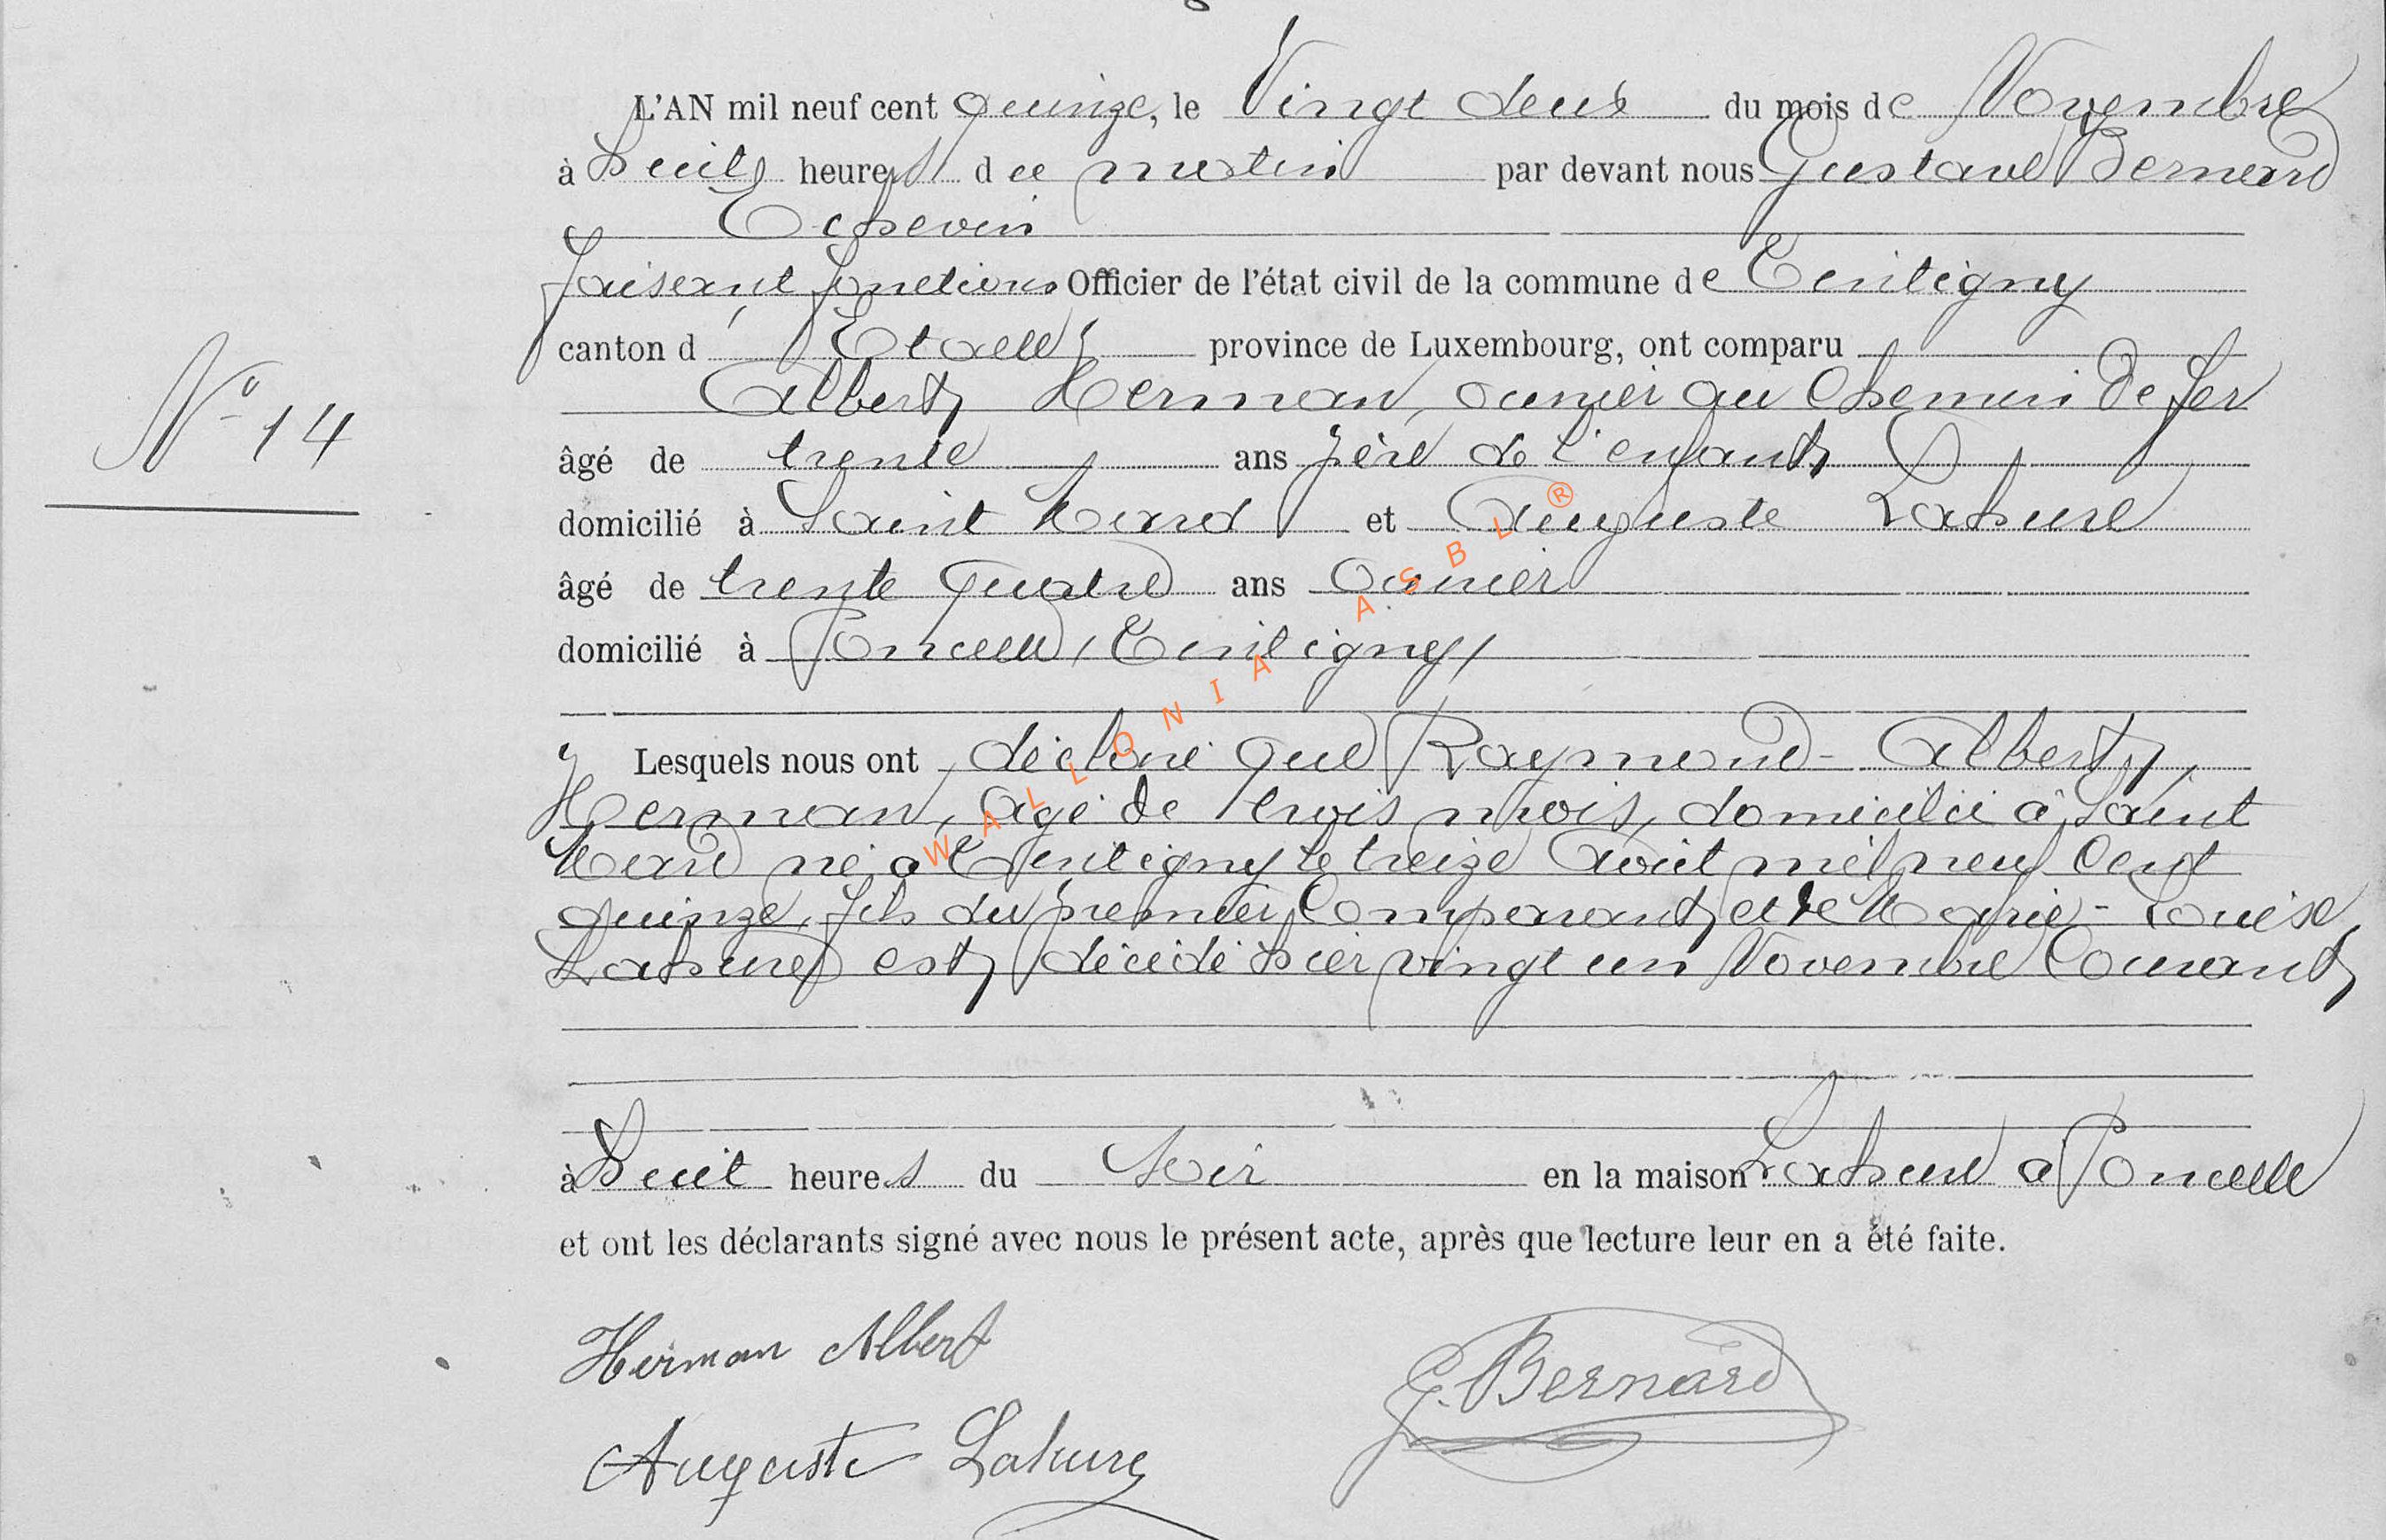 L'AN mil neuf cent quinze, le Vingt deux du mois de Novembre
à huit heures du matin par devant nous Gustave Bernard
Echevin
faisant fonctions Officier de l'état civil de la commune de Tintigny
canton d'Etalle province de Luxembourg, ont comparu
Albert Herman, ouvrier au Chemin de fer
N° 14
âgé de trente ans père de l'enfant
domicilié à Saint Mard et Auguste Lahure
âgé de trente quatre ans ouvrier
domicilié à Poncelle (Tintigny)
Lesquels nous ont déclaré que Raymond-Albert,
Herman, âgé de trois mois, domicilié à Saint
Mard né à Tintigny le treize Août mil neuf cent
quinze, fils du premier Comparant et de Marie-Louise
Lahure est décédé hier vingt un Novembre Courant
à huit heures du soir en la maison Lahure à Poncelle
et ont les déclarants signé avec nous le présent acte, après que lecture leur en a été faite.
Herman Albert
G. Bernard
Auguste Lahure
WALLONIA ASBL ®